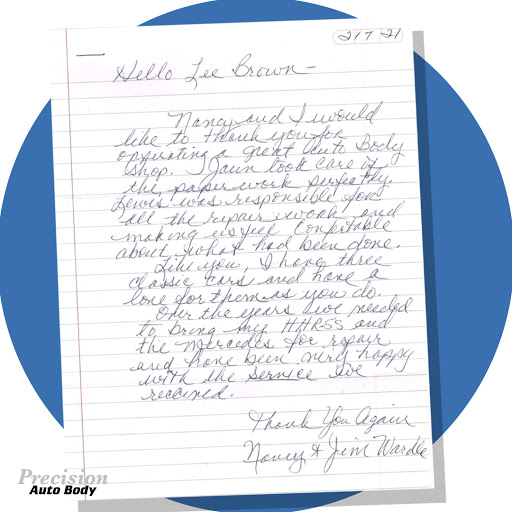 2 17 21
Hello Lee Brown -
Nancy and I would
like to thank you for
operating a great Auto Body
shop. took care of
the paperwork perfectly.
Lewis was responsible for
all the repair work and
making us feel comfortable
about what had been done.
Like you, I have three
classic cars and have a
love for them as you do.
Over the years I've needed
to bring my HHRSS and
the Mercedes for repair
and have been very happy
with the service I've
received.
Thank You Again
Nancy & Jim Wardle
Precision
Auto Body